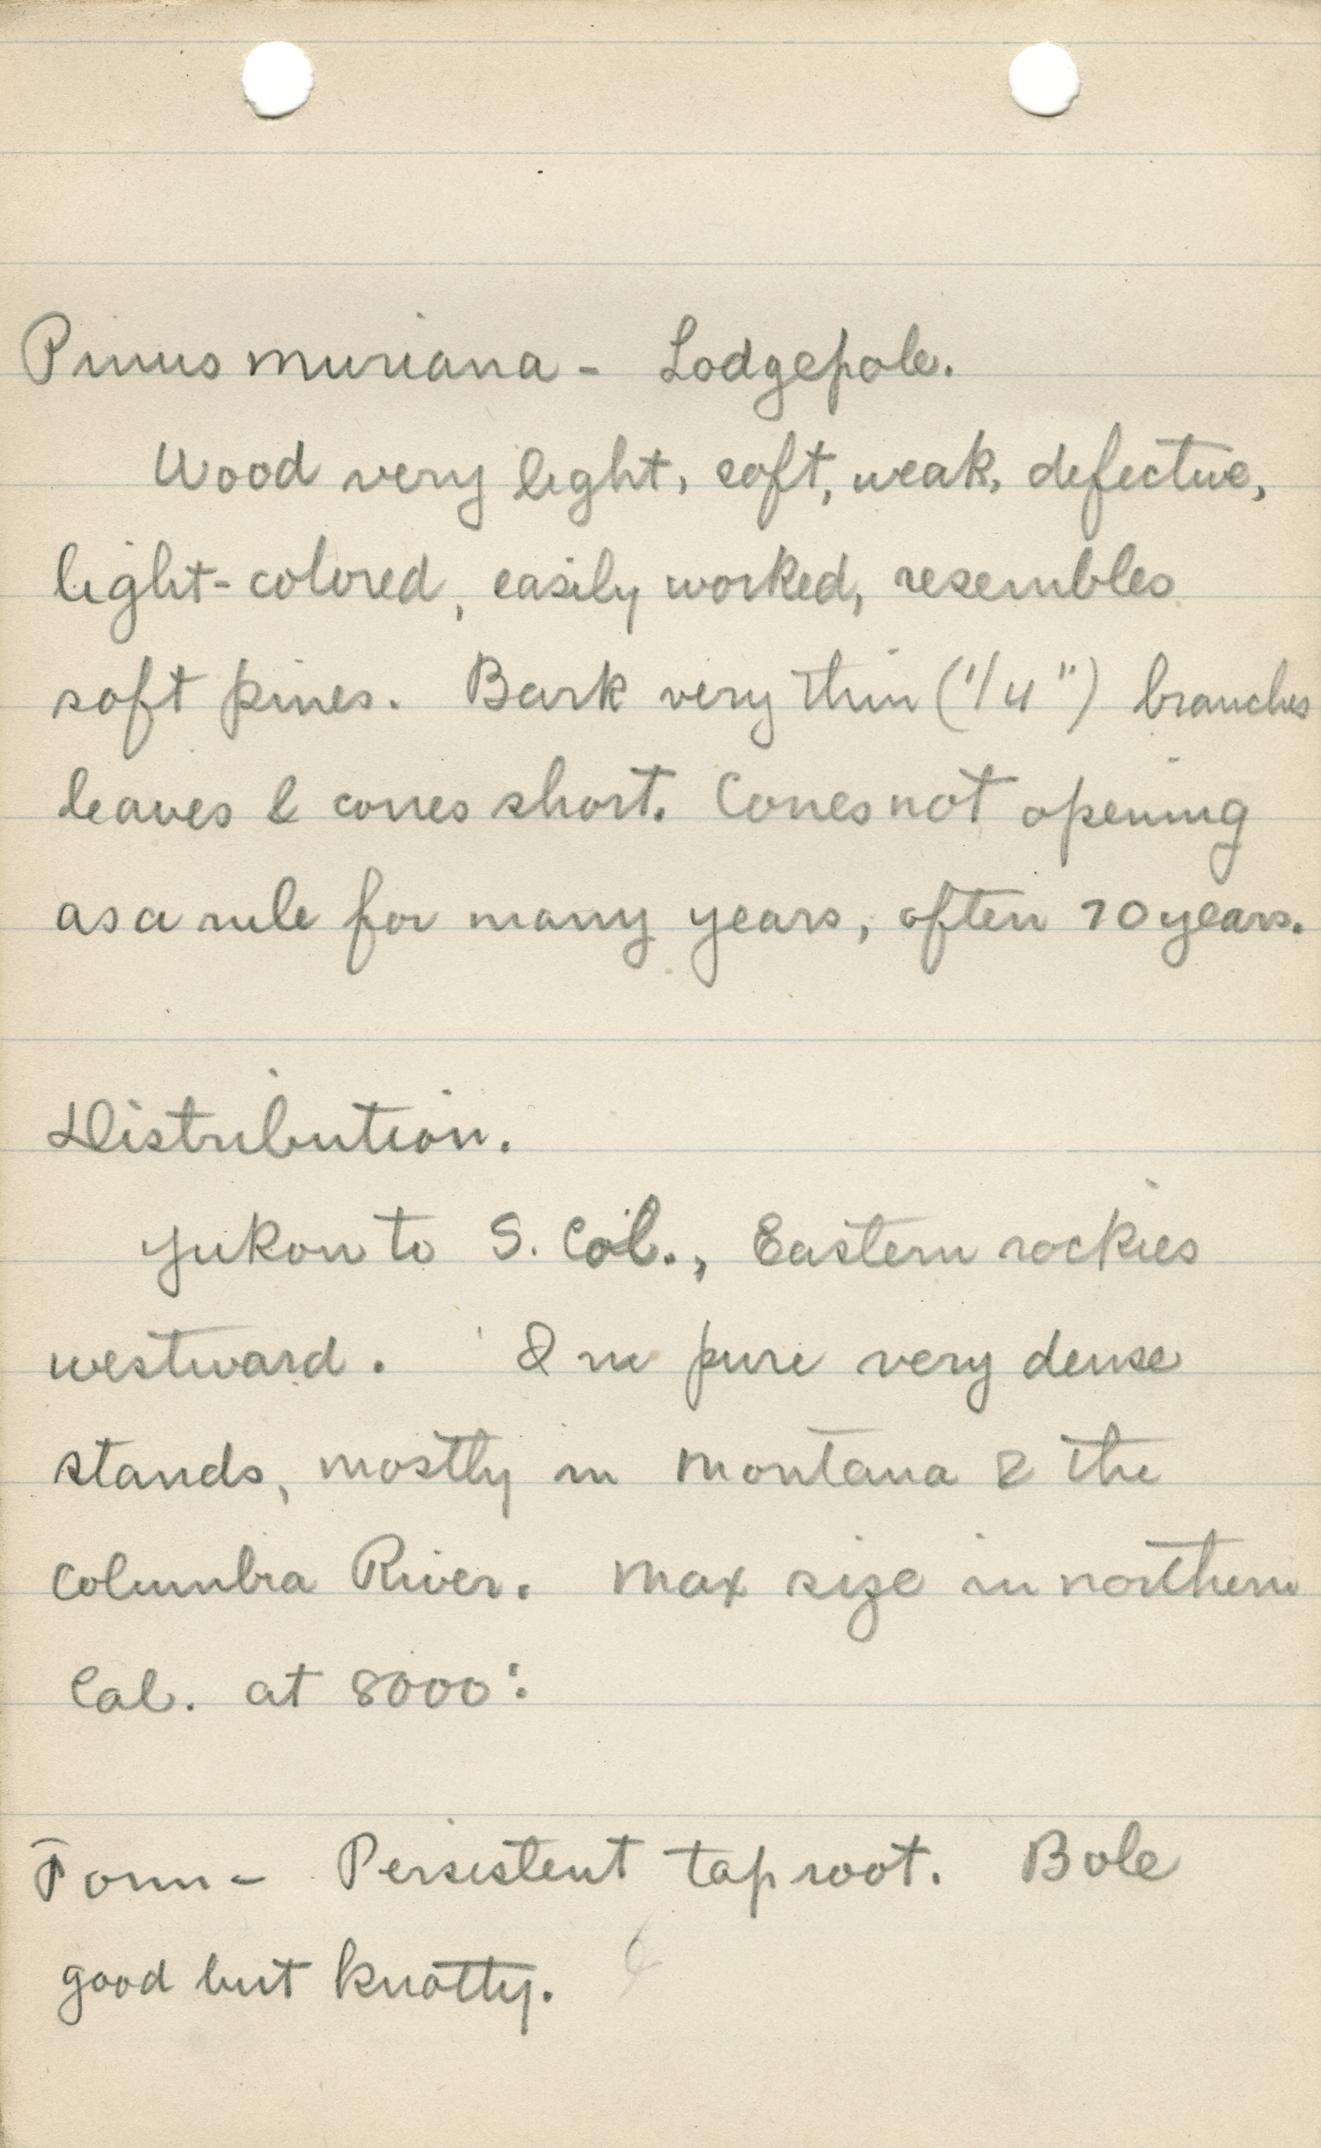 Pinus muriana - Lodgepole.
Wood very light, soft, weak, defective,
light-colored, easily worked, resembles
soft pines. Bark very thin (1/4") branches
leaves & cones short. Cones not opening
as a rule for many years, often 70 years.
Distribution.
Yukon to S. Col., Eastern rockies
westward. & in pure very dense
stands, mostly in Montana & the
Columbia River. Max size in northern
Cal. at 8000'.
Form - Persistent tap root. Bole
good but knotty.